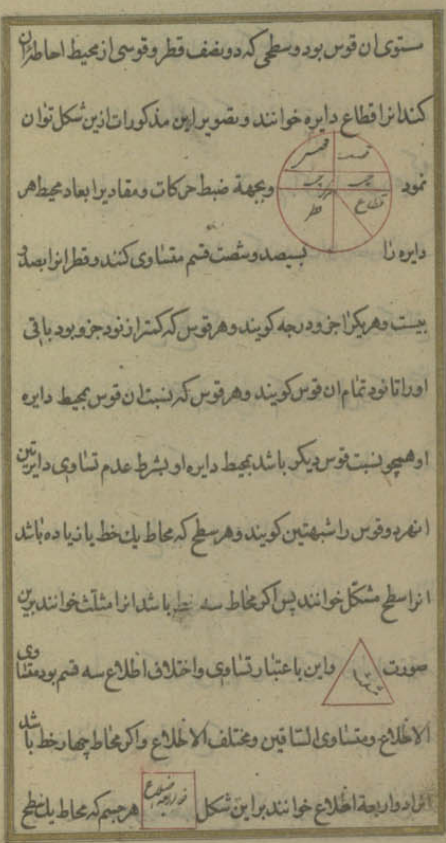 مستوی ان قوس بود و سطحی که دو نصف قطر و قوسی از محیط احاطه بان
کند انرا قطاع دایره خوانند و تصویر این مذکورات ازین شکل توان
نمود وبجهة ضبط حرکات و مقادیر ابعاد محیط هر
قوس
قطاع
قطر
دایره را بسیصد و شصت قسم متساوی کنند و قطر انرا بصد و
بیست و هر یک را جزو درجه کویند و هر قوس که کمتر از نود جزو بود باقی
اورا تا نود تمام ان قوس کویند و هر قوس که نسبت ان قوس بمحیط دایره
او همچو نسبت قوس دیکر باشد بمحیط دایره او بشرط عدم تساوی دایرتین
انهر دو قوس را شبهتین کویند و هر سطح که محاط یک خط یا زیاده باشد
انرا سطح مشکل خوانند پس اکر محاط سه خط باشد انرا مثلث خوانند برین
صورت واین باعتبار تساوی و اختلاف اظلاع سه قسم بود متساوی
الاظلاع و متساوی الساقین و مختلف الاظلاع و اکر محاط چهار خط باشد
انرا ذو اربعة اظلاع خوانند براین شکل هر جسم که محاط یک سطح